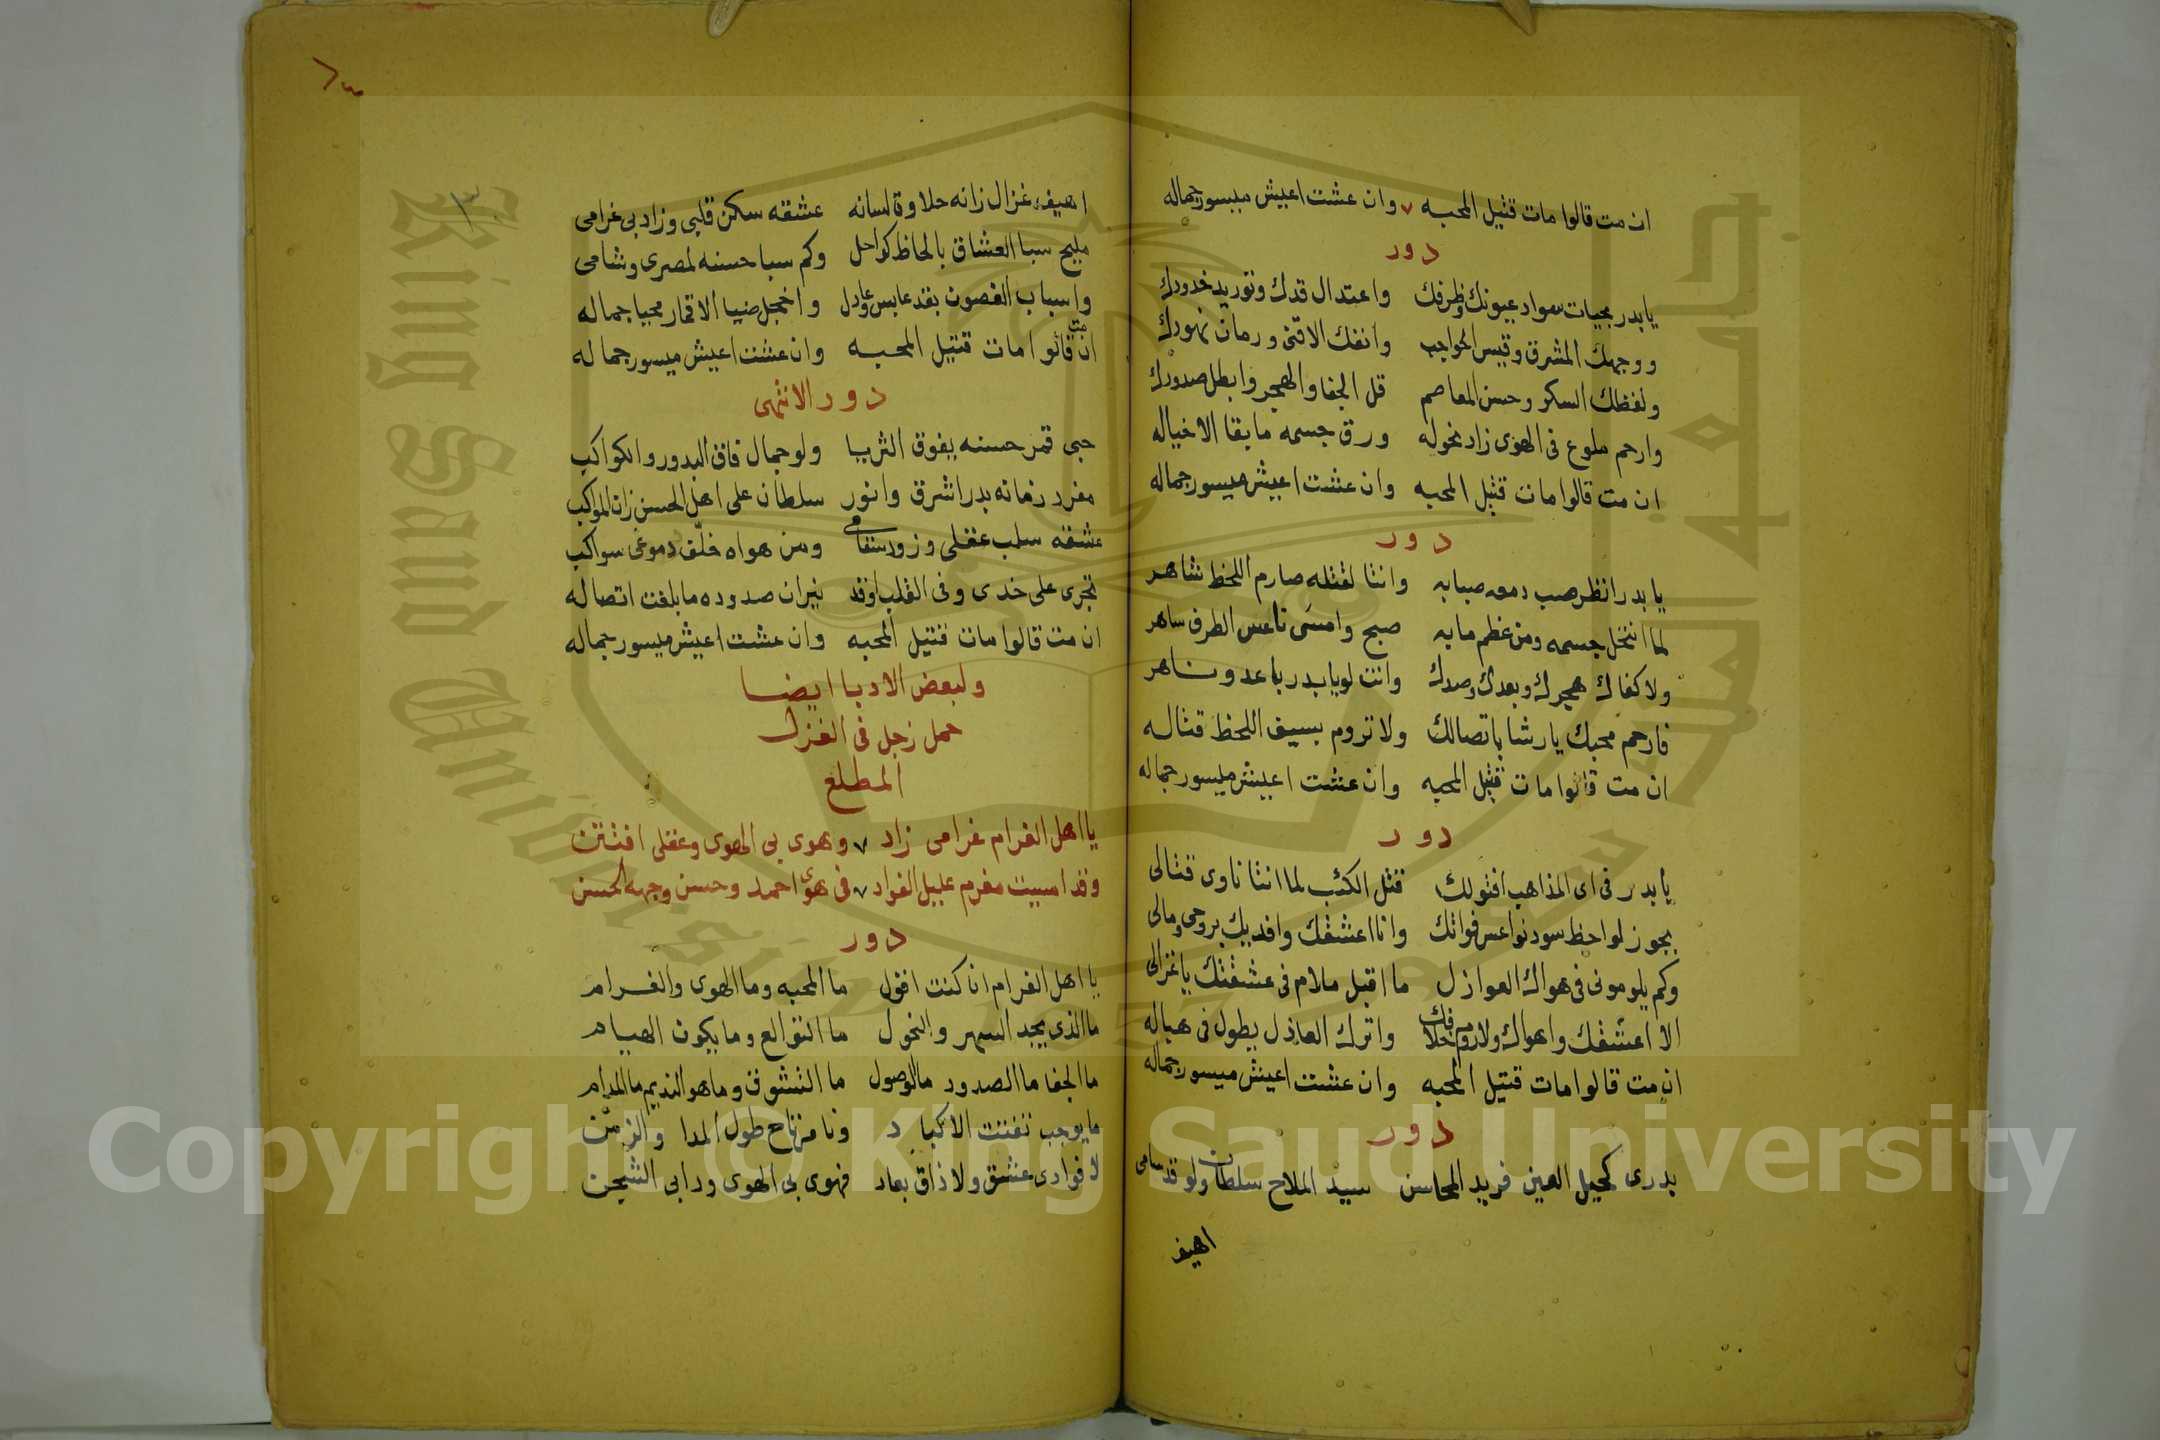 ان مت قالوا مات قتيل المحبه وان عشت اعيش ميسور جماله
دور
يا بدر بحيات سواد عيونك وظرفك واعتدال قدك وتوريد خدودك
ووجهك المشرق وقيس الحواجب وانفك الاقنى ورمان نهودك
ولفظك السكر وحسن المعاصم قل الجفا والهجر وابطل صدودك
وارحم ملوع فى الهوى زاد نحوله ورق جسمه ما بقا الا خياله
ان مت قالوا مات قتيل المحبه وان عشت اعيش ميسور جماله
دور
يا بدر انظر صب دمعه صبابه وانتا لقتله صارم اللحظ شاهر
لما انتحل جسمه ومن عظم ما به صبح وامسى ناعس الطرف ساهر
ولا كفاك هجرك وبعدك وصدك وانت لو يا بدر باعد وناهر
فارحم محبك يا رشا باتصالك ولا تروم بسيف اللحظ قتاله
ان مت قالوا مات قتيل المحبه وان عشت اعيش ميسور جماله
دور
يا بدر فى اى المذاهب افتولك قتل الكئب لما انتا ناوى قتالى
بجوز لواحظ سود نواعس فواتك وانا اعشقك وافديك بروحى ومالى
وكم يلومونى فى هواك العواذل ما اقبل ملام فى عشقتك يا غزالى
الا اعشقك واهواك ولا روم خلافك واترك العاذل يطول فى هباله
ان مت قالوا مات قتيل المحبه وان عشت اعيش ميسور جماله
دور
بدرى كحيل العين فريد المحاسن سيد الملاح سلطان ولو قد سامى
اهيف
اهيف غزال زانه حلاوة لسانه عشقه سكن قلبى وزاد بى غرامى
مليح سبا العشاق بالحاظ كواحل وكم سبا حسنه لمصرى وشامى
واسباب الغصون بقد عابس وعادل واخجل ضيا الاقمار محيا جماله
ان مت قالوا مات قتيل المحبه وان عشت اعيش ميسور جماله
دور الانتهى
حبى قمر حسنه يفوق الثريا ولو جمال فاق البدور والكواكب
مفرد زمانه بدر اشرق وانور سلطان على اهل الحسن زان المواكب
عشقه سلب عقلى وزود سقامى ومن هواه خلى دموعى سواكب
تجرى على خدى وفى القلب اوقد نيران صدوده ما بلغت اتصاله
ان مت قالوا مات قتيل المحبه وان عشت اعيش ميسور جماله
ولبعض الادبا ايضا
حمل زجل فى الغزل
المطلع
يا اهل الغرام غرامى زاد وهوى بى الهوى وعقلى افتتن
وقد امسيت مغرم عليل الفواد فى هوى احمد وحسن وجهه الحسن
دور
يا اهل الغرام انا كنت اقول ما المحبه وما الهوى والغرام
ما الذى يجد السهر والنحول ما التوالع وما يكون الهيام
ما الجفا ما الصدود ما الوصول ما التشوق وما هو النديم ما المدام
ما يوجب تفتت الاكباد ونا مرتاح طول المدا والزمن
لا فوادى عشق ولا ذاق بعاد فهوى بى الهوى ودابى الشجن
Copyright © King Saud University
King Saud University
جامعة الملك سعود
1957